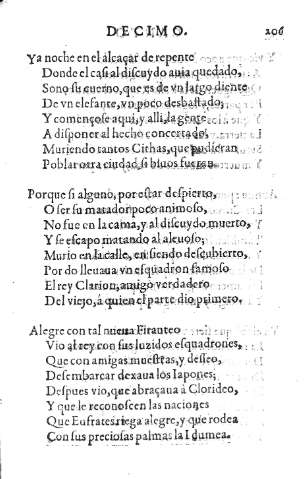 DECIMO. 206
Ya noche en el alcaçar de repente
Donde el casi al discuydo auia quedado,
Sono su cuerno, que es de vn largo diente
De vn elefante, vn poco desbastado,
Y començose aqui, y alli, la gente
A disponer al hecho concertado,
Muriendo tantos Cithas, que pudieran
Poblar otra ciudad si biuos fueran.
Porque si alguno, por estar despierto,
O ser su matador poco animoso,
No fue en la cama, y al discuydo muerto,
Y se escapo matando al aleuoso,
Murio en la calle, en siendo descubierto,
Por do lleuaua vn esquadron famoso
El rey Clarion, amigo verdadero
Del viejo, á quien el parte dio primero.
Alegre con tal nueua Firauteo
Vio al rey con sus luzidos esquadrones,
Que con amigas muestras, y desseo,
Desembarcar dexaua los Iapones;
Despues vio, que abraçaua à Clorideo,
Y que le reconoscen las naciones
Que Eufrates riega alegre, y que rodea
Con sus preciosas palmas la Idumea.